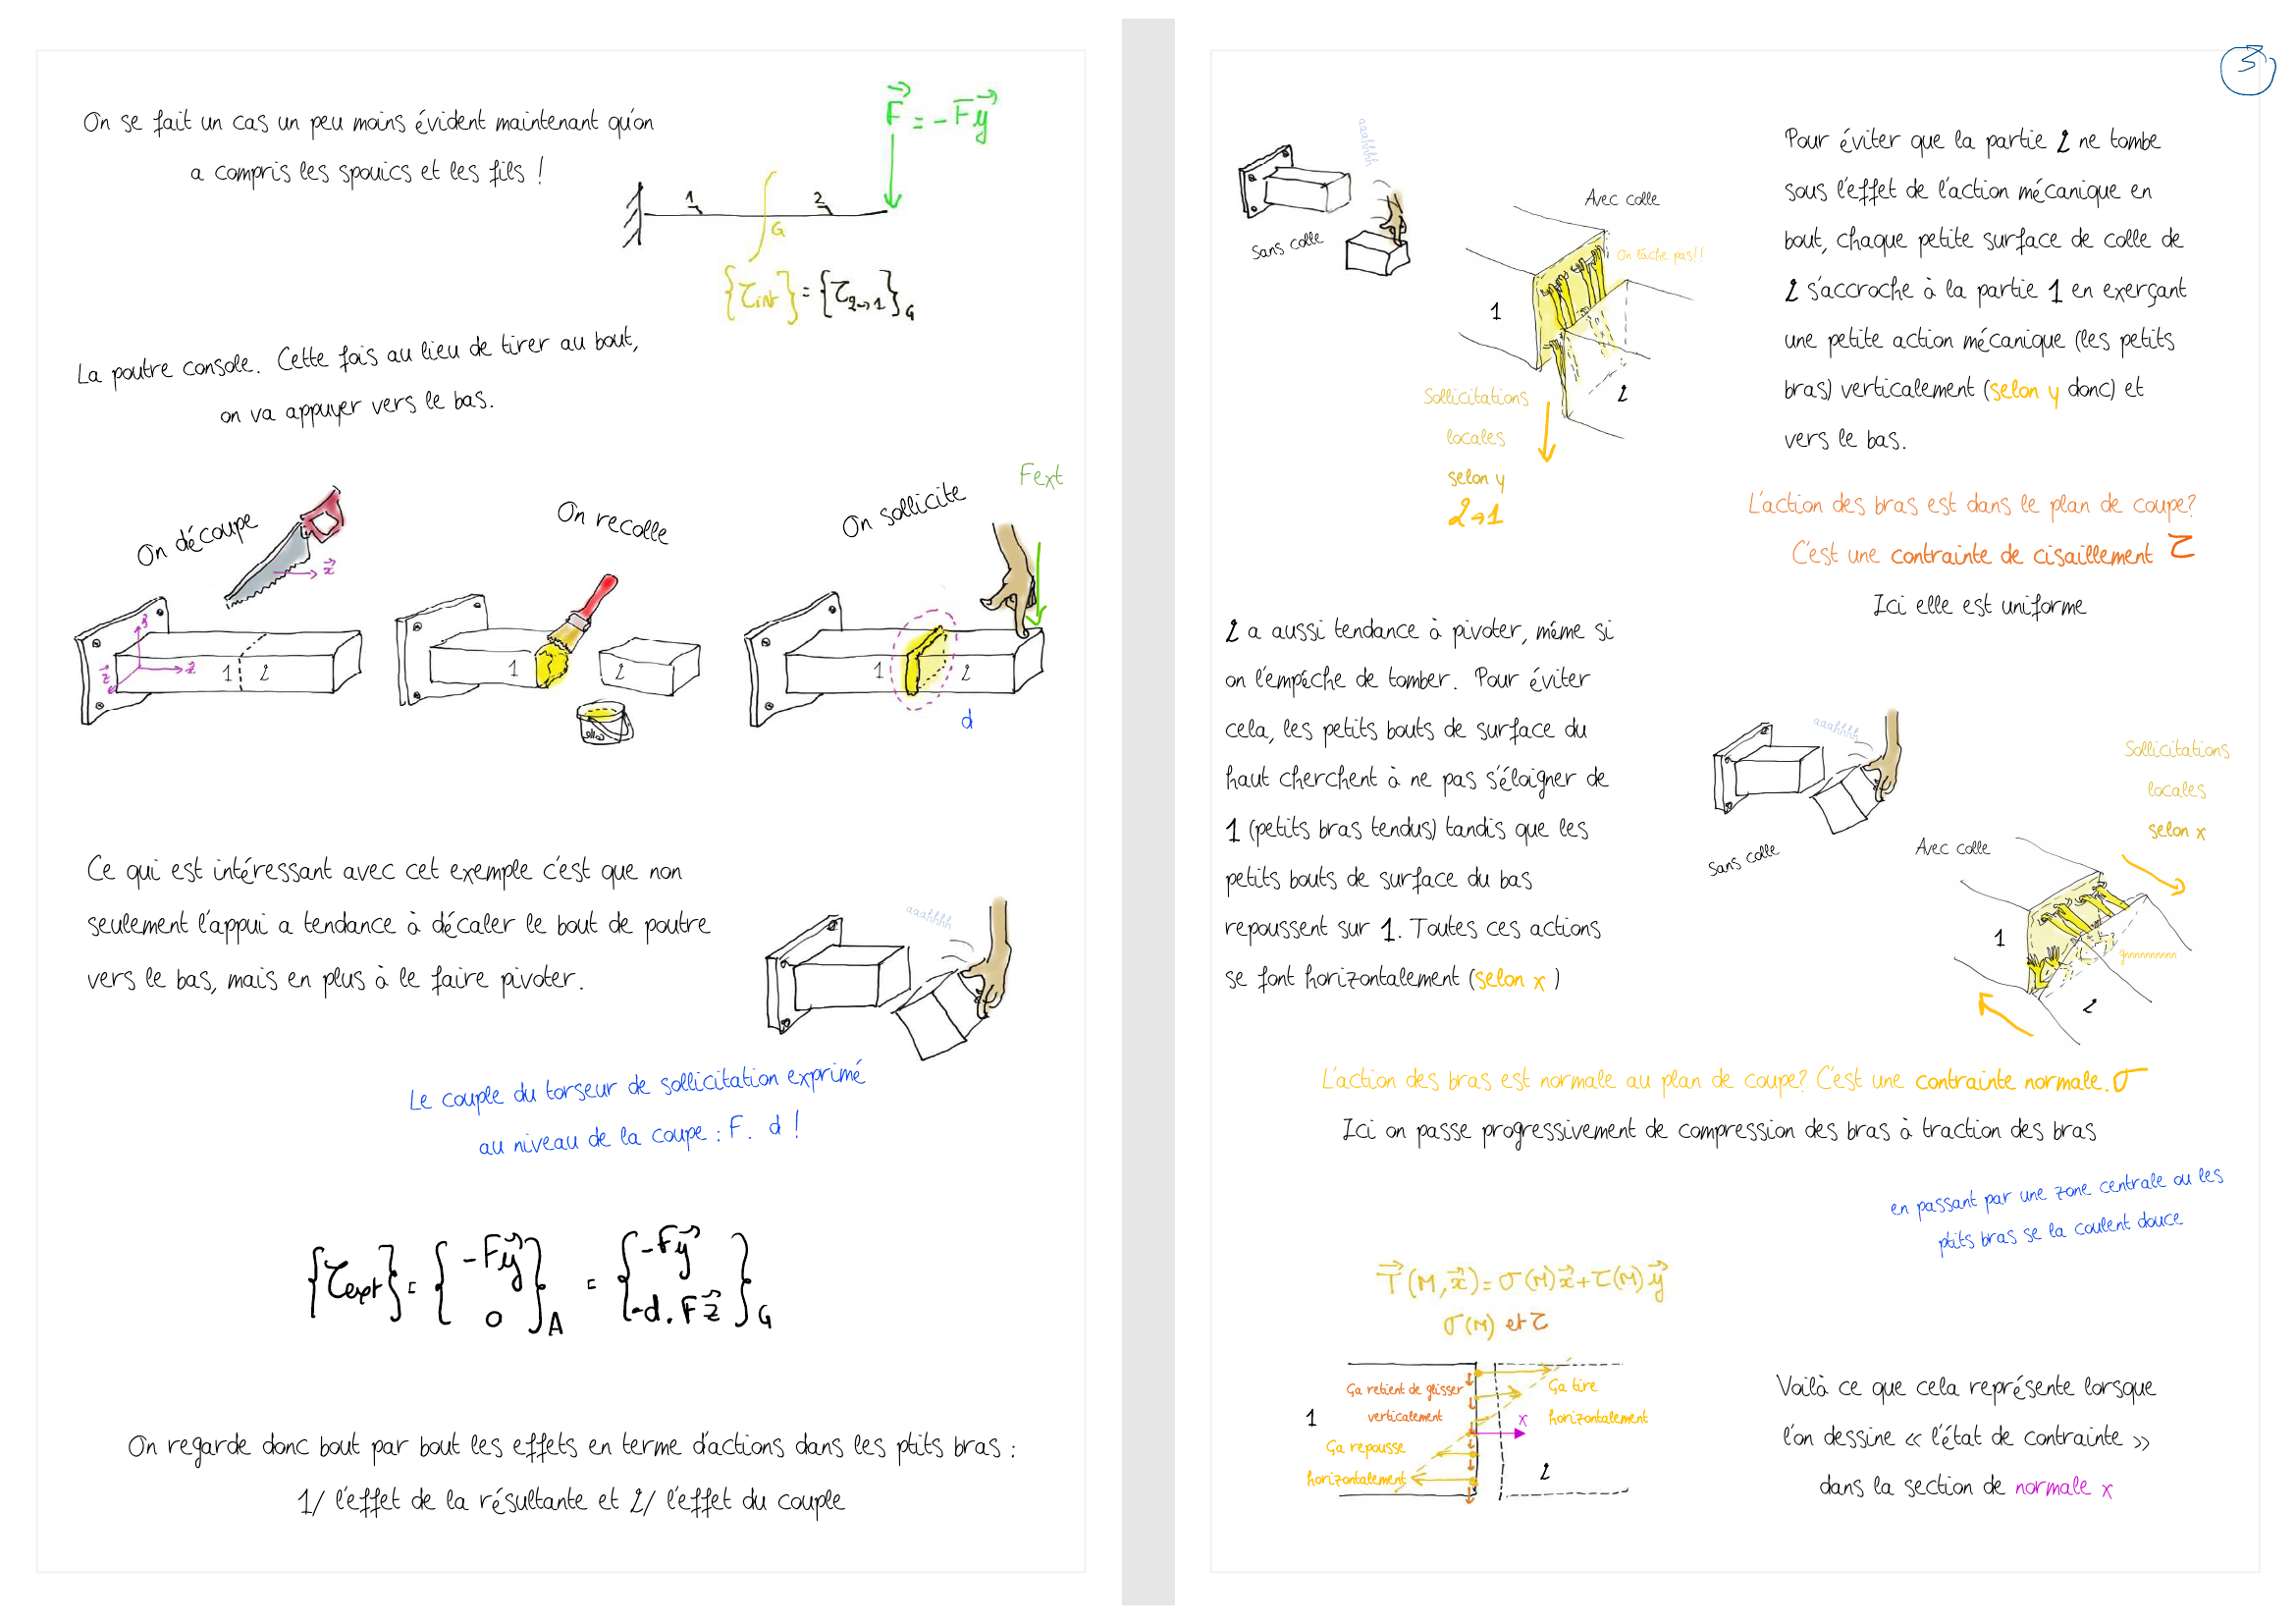 On se fait un cas un peu moins évident maintenant qu'on
a compris les spouics et les fils !
F = -Fy
1 2
G
{τint} = {τ2→1}G
La poutre console. Cette fois au lieu de tirer au bout,
on va appuyer vers le bas.
On découpe
x
1 2
z
On recolle
1 2
On sollicite
Fext
1 2
d
Ce qui est intéressant avec cet exemple c'est que non
seulement l'appui a tendance à décaler le bout de poutre
vers le bas, mais en plus à le faire pivoter.
aaahhhh
Le couple du torseur de sollicitation exprimé
au niveau de la coupe : F. d !
{τext} = {-Fy
0}A = {-Fy
-d.Fz}G
On regarde donc bout par bout les effets en terme d'actions dans les ptits bras :
1/ l'effet de la résultante et 2/ l'effet du couple
3
aaahhhh
Sans colle
Avec colle
On lâche pas!!
1
2
Sollicitations
locales
selon y
2→1
Pour éviter que la partie 2 ne tombe
sous l'effet de l'action mécanique en
bout, chaque petite surface de colle de
2 s'accroche à la partie 1 en exerçant
une petite action mécanique (les petits
bras) verticalement (selon y donc) et
vers le bas.
L'action des bras est dans le plan de coupe?
C'est une contrainte de cisaillement τ
Ici elle est uniforme
2 a aussi tendance à pivoter, même si
on l'empêche de tomber. Pour éviter
cela, les petits bouts de surface du
haut cherchent à ne pas s'éloigner de
1 (petits bras tendus) tandis que les
petits bouts de surface du bas
repoussent sur 1. Toutes ces actions
se font horizontalement (selon x )
aaahhhh
Sans colle
Sollicitations
locales
selon x
Avec colle
1
2
L'action des bras est normale au plan de coupe? C'est une contrainte normale. σ
Ici on passe progressivement de compression des bras à traction des bras
en passant par une zone centrale ou les
ptits bras se la coulent douce
T(M,x) = σ(M)x + τ(M)y
σ(M) et τ
Ça retient de glisser
verticalement
Ça tire
horizontalement
1
x
Ça repousse
horizontalement
2
Voilà ce que cela représente lorsque
l'on dessine « l'état de contrainte »
dans la section de normale x